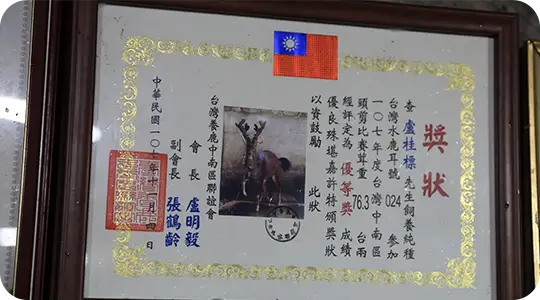 獎狀
查 盧桂標 先生飼養純種
台灣水鹿耳號 024 參加
一○七年度台灣中南區
頭剪比賽茸重 76.3 台兩
經評定為 優等獎 成績
優良殊堪嘉許特頒獎狀
以資鼓勵 此狀
台灣養鹿中南區聯誼會
會長 盧明毅
副會長 張鶴齡
中華民國一○七年十一月四日